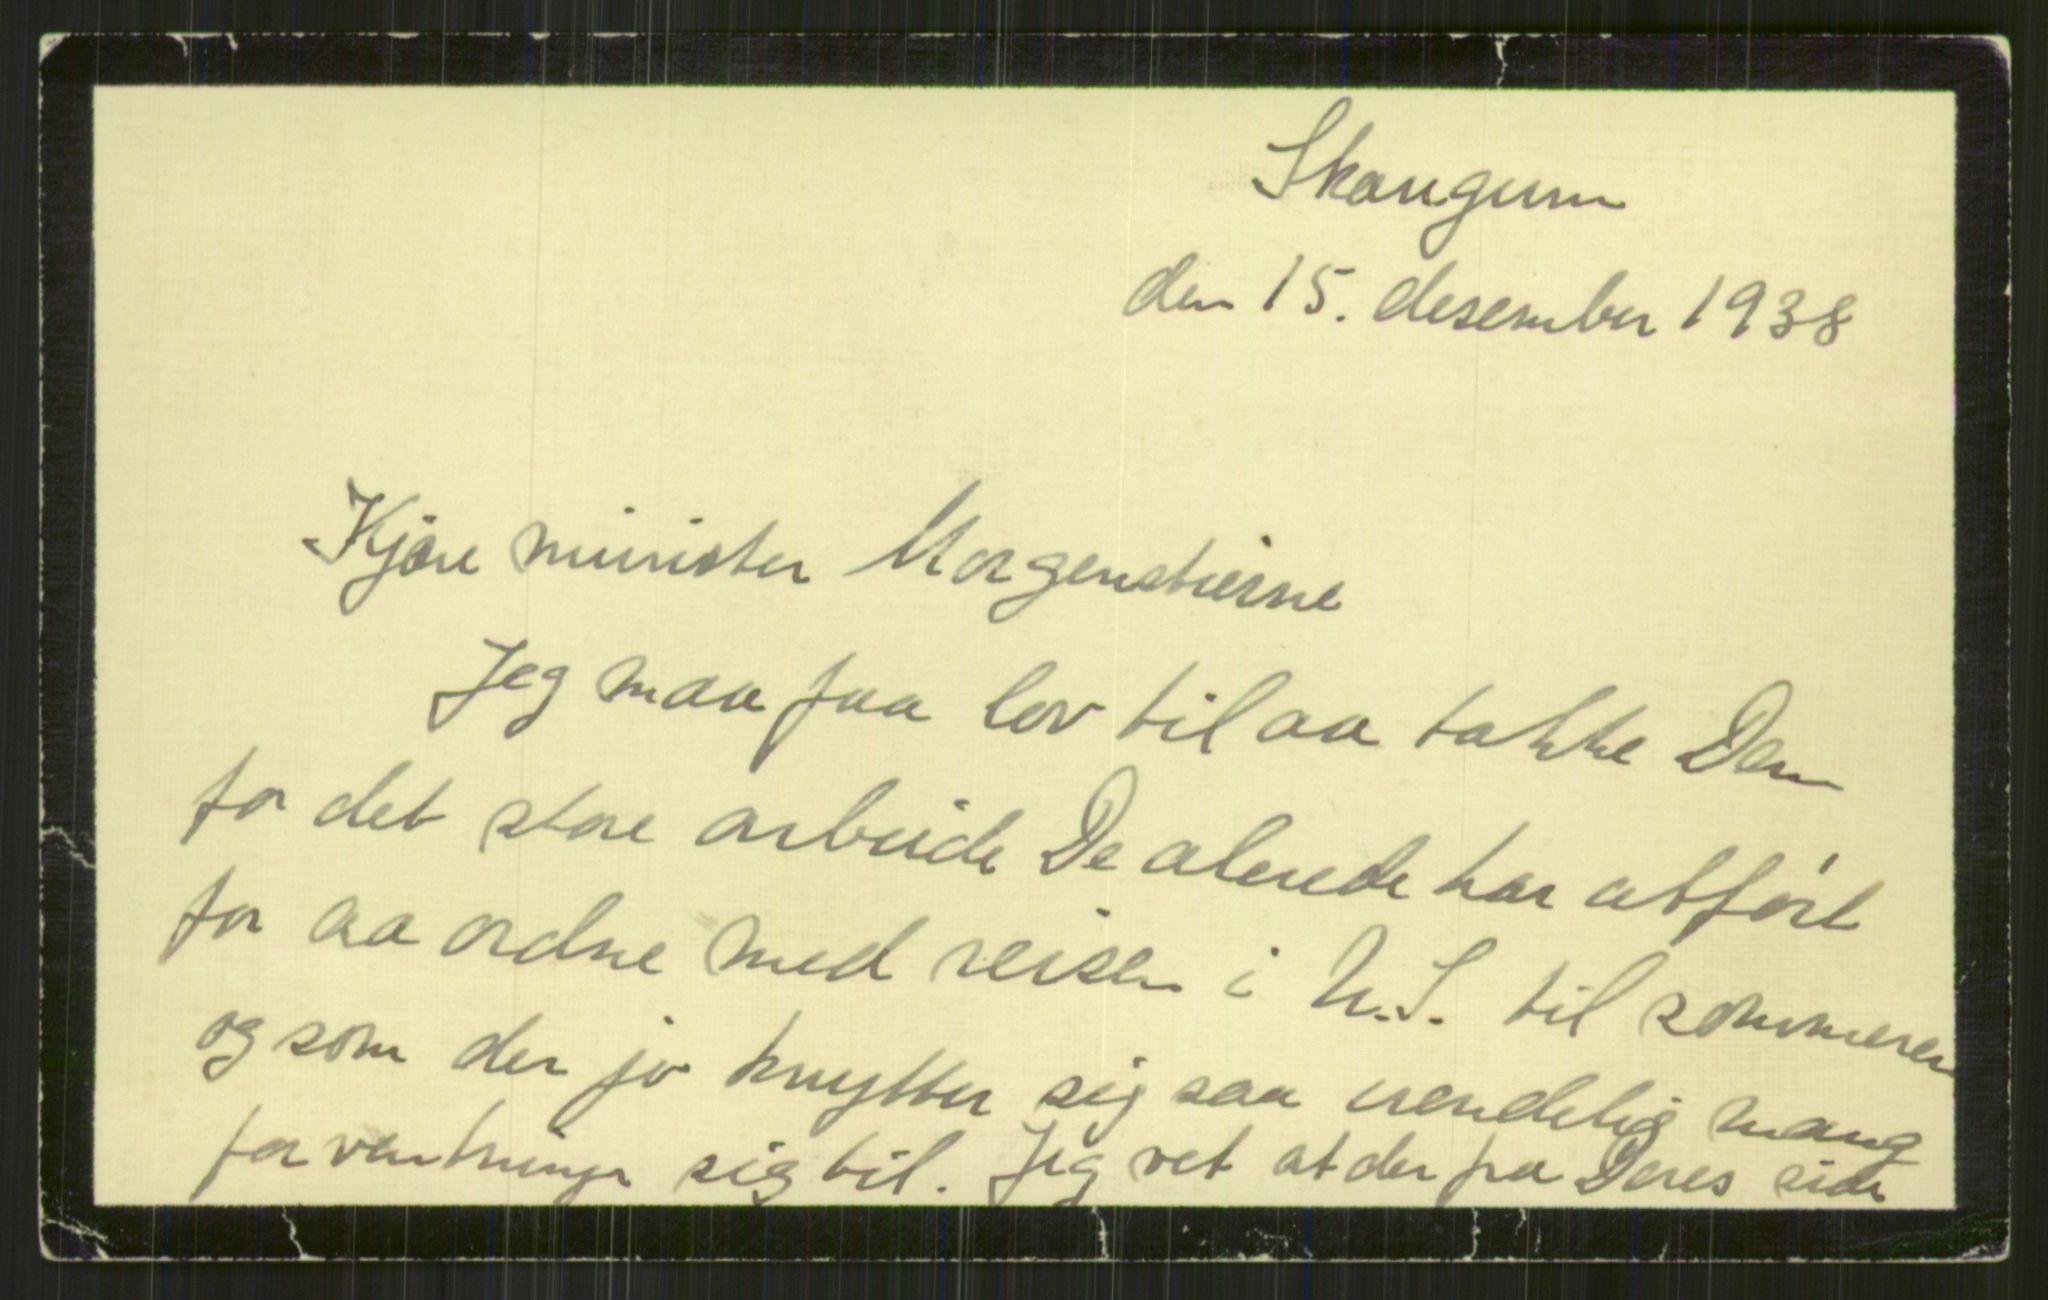 Skaugum
den 15. desember 1938
Kjære minister Morgenstierne
Jeg maa faa lov til aa takke Dem
for det store arbeide De alerede har utført
for aa ordne med reisen i U.S. til sommeren
og som der jo knytter sig saa uendelig mang
forventninger sig til. Jeg vet at der fra Deres side